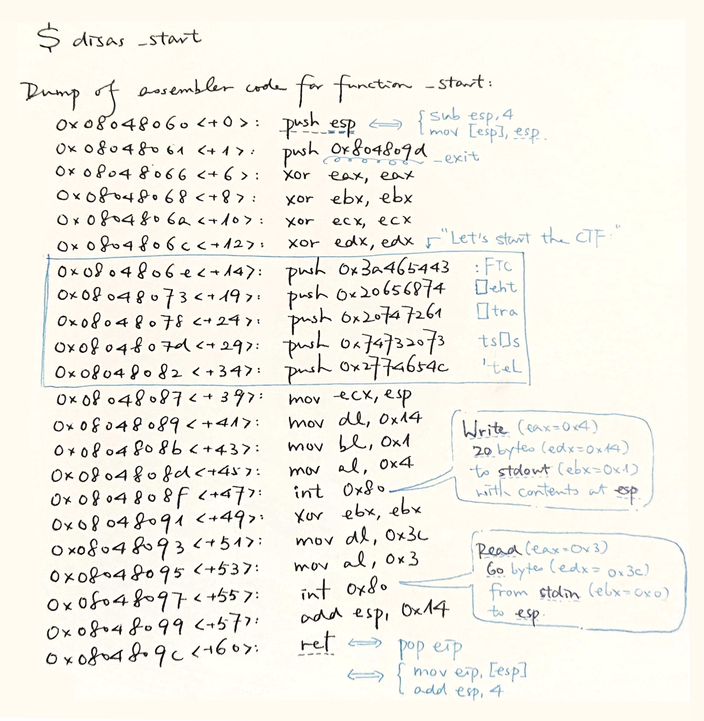 $ disas _start
Dump of assembler code for function _start:
0x08048060 <+0>: push esp ⟺ { sub esp, 4
mov [esp], esp.
0x08048061 <+1>: push 0x804809d _exit
0x08048066 <+6>: xor eax, eax
0x08048068 <+8>: xor ebx, ebx
0x0804806a <+10>: xor ecx, ecx
0x0804806c <+12>: xor edx, edx "Let's start the CTF:"
0x0804806e <+14>: push 0x3a465443 :FTC
0x08048073 <+19>: push 0x20656874 □eht
0x08048078 <+24>: push 0x20747261 □tra
0x0804807d <+29>: push 0x74732073 ts□s
0x08048082 <+34>: push 0x2774654c 'teL
0x08048087 <+39>: mov ecx, esp
0x08048089 <+41>: mov dl, 0x14
0x0804808b <+43>: mov bl, 0x1
0x0804808d <+45>: mov al, 0x4
0x0804808f <+47>: int 0x80
0x08048091 <+49>: xor ebx, ebx
0x08048093 <+51>: mov dl, 0x3c
0x08048095 <+53>: mov al, 0x3
0x08048097 <+55>: int 0x80
0x08048099 <+57>: add esp, 0x14
0x0804809c <+60>: ret ⟺ pop eip
⟺ { mov eip, [esp]
add esp, 4
Write (eax=0x4)
20 bytes (edx=0x14)
to stdout (ebx=0x1)
with contents at esp
Read (eax=0x3)
60 bytes (edx= 0x3c)
from stdin (ebx=0x0)
to esp.